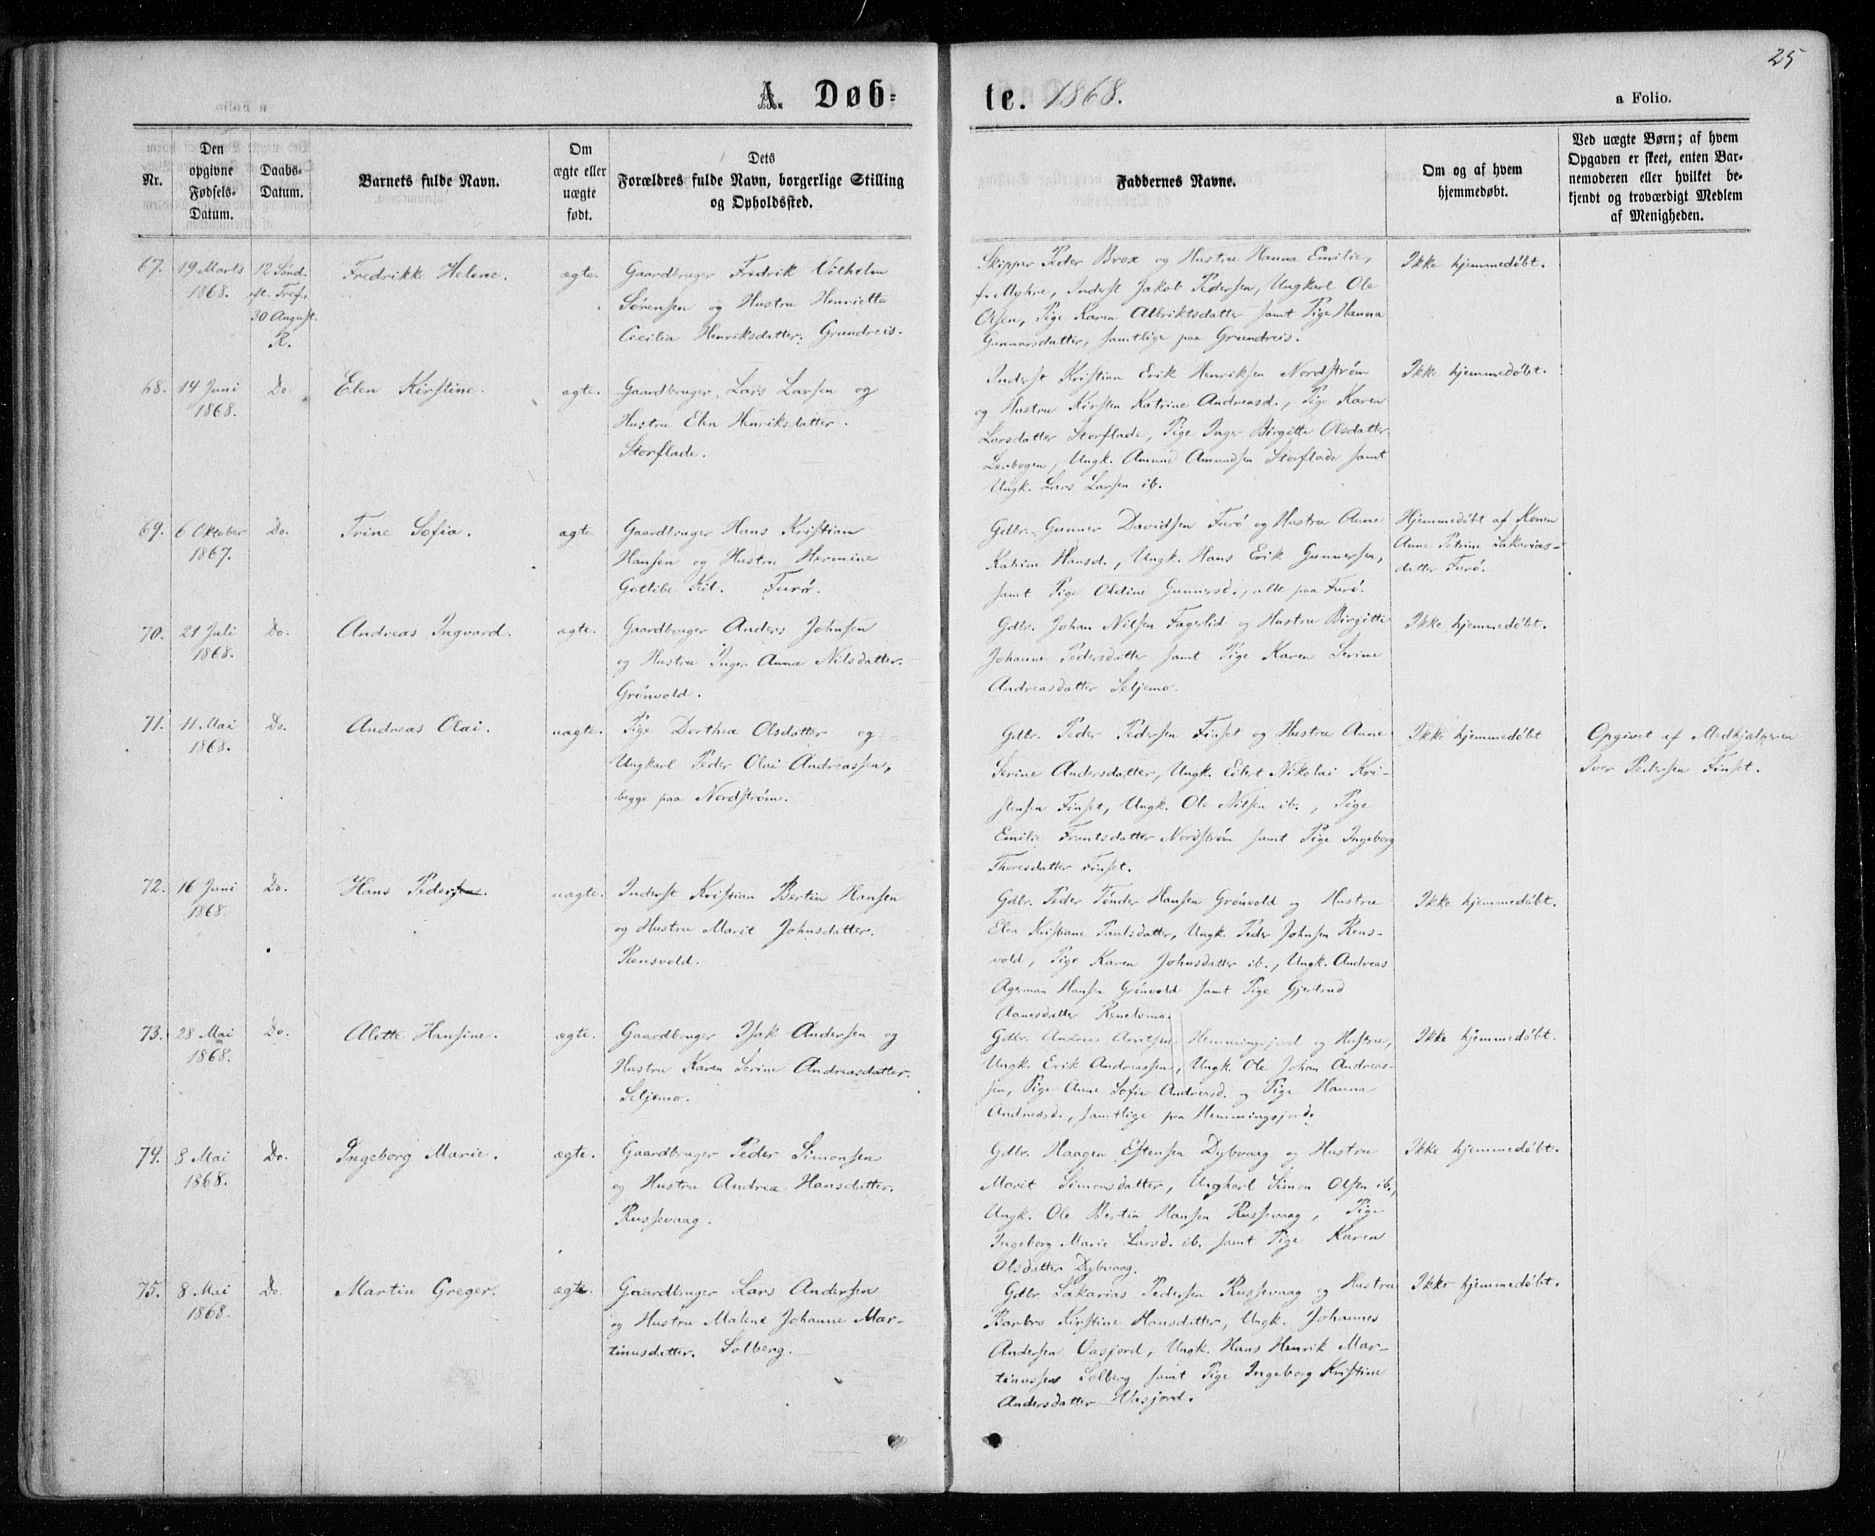 25
A. Døb-
te. 1868.
a Folio.
Nr.
Den
opgivne
Fødsels-
Datum.
Daabs-
Datum.
Barnets fulde Navn.
Om
ægte eller
uægte
født.
Dets
Forældres fulde Navn, borgerlige Stilling
og Opholdssted.
Faddernes Navne.
Om og af hvem
hjemmedøbt.
Ved uægte Børn; af hvem
Opgaven er skeet, enten Bar-
nemoderen eller hvilket be-
kjendt og troværdigt Medlem
af Menigheden.
67.
19 Marts
1868.
12 Sønd.
eft. Tref.
30 August.
K.
Fredrikke Helene.
ægte.
Gaardbruger Fredrik Vilhelm
Sørensen og Hustru Henriette
Cecilia Henriksdatter. Grundreis.
Skipper Peder Brox og Hustru Hanna Emilie,
f. Myhre, Inderst Jakob Pedersen, Ungkarl Ole
Olsen, Pige Karen Albriktsdatter samt Pige Hanna
Gunnarsdatter, samtlige paa Grundreis.
Ikke hjemmedøbt.
68.
14 Juni
1868.
Do.
Elen Kirstine.
ægte.
Gaardbruger Lars Larsen og
Hustru Elen Henriksdatter.
Storflade.
Inderst Kristian Erik Henriksen Nordstrøm
og Hustru Kirsten Katrine Andreasd., Pige Karen
Larsdatter Storflade, Pige Inger Birgitte Olsdatter
Lerbogen, Ungk. Amund Amundsen Storflade samt
Ungk. Lars Larsen ib.
Ikke hjemmedøbt.
69.
6 Oktober
1867.
Do.
Trine Sofia.
ægte.
Gaardbruger Hans Kristian
Hansen og Hustru Hermine
Gotlibe Kil. Furø.
Gdbr. Gunner Davidsen Furø og Hustru Anne
Katrine Hansd., Ungk. Hans Erik Gunnersen,
samt Pige Oldine Gunnersd., alle paa Furø.
Hjemmedøbt af Konen
Anne Petrine Sakarias-
datter Furø.
70.
21 Juli
1868.
Do.
Andreas Ingvard.
ægte.
Gaardbruger Anders Johnsen
og Hustru Inger Anna Nilsdatter.
Grønvold.
Gdbr. Johan Nilsen Fagerlid og Hustru Birgitte
Johanne Pedersdatter samt Pige Karen Serine
Andreasdatter Seljemo.
Ikke hjemmedøbt.
71.
11 Mai
1868.
Do.
Andreas Olai.
uægte.
Pige Dorthea Olsdatter og
Ungkarl Peder Olai Andreassen,
begge paa Nordstrøm.
Gdbr. Peder Pedersen Finset og Hustru Anne
Serine Andersdatter, Ungk. Eilert Nikolai Kri-
stensen Finset, Ungk. Ole Nilsen ib., Pige
Emilie Frantsdatter Nordstrøm samt Pige Ingeborg
Thoresdatter Finset.
Ikke hjemmedøbt
Opgivet af Medhjælperen
Iver Pedersen Finset.
72.
16 Juni
1868.
Do.
Hans Peder.
uægte.
Inderst Kristian Bertin Hansen
og Hustru Marit Johnsdatter.
Rensvold.
Gdbr. Peder Tønder Hansen Grønvold og Hustru
Elen Kristiane Paulsdatter, Ungk. Peder Johnsen Rens-
vold, Pige Karen Johnsdatter ib., Ungk. Andreas
Agerman Hansen Grønvold samt Pige Gjertrud
Aanesdatter
Ikke hjemmedøbt.
73.
28 Mai
1868.
Do.
Alette Hansine.
ægte.
Gaardbruger Isak Andersen og
Hustru Karen Serine Andreasdatter.
Seljemo.
Gdbr. Andreas Arntsen Hemmingsjord og Hustru,
Ungk. Erik Andreassen, Ungk. Ole Johan Andreas-
sen, Pige Anne Sofie Andreasd. og Pige Hanna
Andreasd., samtlige paa Hemmingsjord.
Ikke hjemmedøbt.
74.
8 Mai
1868.
Do.
Ingeborg Marie.
ægte.
Gaardbruger Peder Simonsen
og Hustru Andrea Hansdatter.
Russevaag.
Gdbr. Haagen Estensen Dybvaag og Hustru
Marit Simonsdatter, Ungkarl Simon Olsen ib.,
Ungk. Ole Bertin Hansen Russevaag, Pige
Ingeborg Marie Larsd. ib. samt Pige Karen
Olsdatter Dybvaag.
Ikke hjemmedøbt.
75.
8 Mai
1868.
Do.
Martin Greger.
ægte.
Gaardbruger Lars Andersen
og Hustru Malene Johanne Mar-
tinusdatter. Solberg.
Gdbr. Sakarias Pedersen Russevaag og Hustru
Barbro Kirstine Hansdatter, Ungk. Johannes
Andersen Vasjord, Ungk. Hans Henrik Mar-
tinussen Solberg samt Pige Ingeborg Kristine
Andersdatter Vasjord.
Ikke hjemmedøbt.